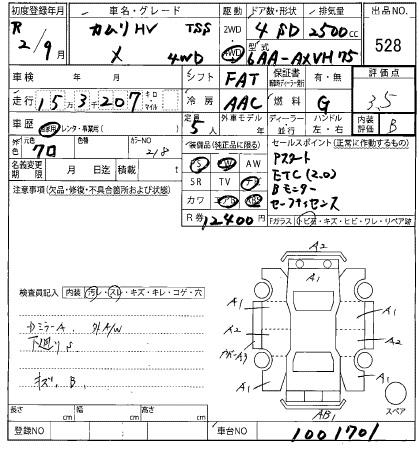 初度登録年月 車名・グレード 駆動 ドア数・形状 排気量 出品NO
R 2/9月 カムリHV TSS 2WD 4 SD 2500cc 528
X 4WD 4WD 型式 6AA-AXVH75
車検 年 月 シフト FAT 保証書 有・無 評価点
走行 15万3千207 キロ・マイル 冷房 AAC 燃料 G 3.5
車歴 自家用・レンタ・事業用( ) 定員 5人 外車モデル 年 ディーラー 並行 ハンドル 左・右 内装評価 B
元色 70 色種 カラーNO 218
名義変更期限 月 日迄 積載 t
装備品(純正品に限る) セールスポイント(正常に作動するもの)
PS PW AW Pスタート
SR TV ナビ ETC(2.0)
カワ エアB Bモニター
セーフティセンス
R券 12400円 Fガラス トビ石・キズ・ヒビ・ワレ・リペア跡
注意事項(欠品・修復・不具合箇所および状態)
検査員記入 内装 汚レ・スレ・キズ・キレ・コゲ・穴
DミラーA. 外A/W
下廻りS
キズ. B.
A2
A1
A1 A1
A2 A1
A2
A1 A1
A1
AB1
スペア
長さ cm 幅 cm 高さ cm
登録NO 車台NO 1001701